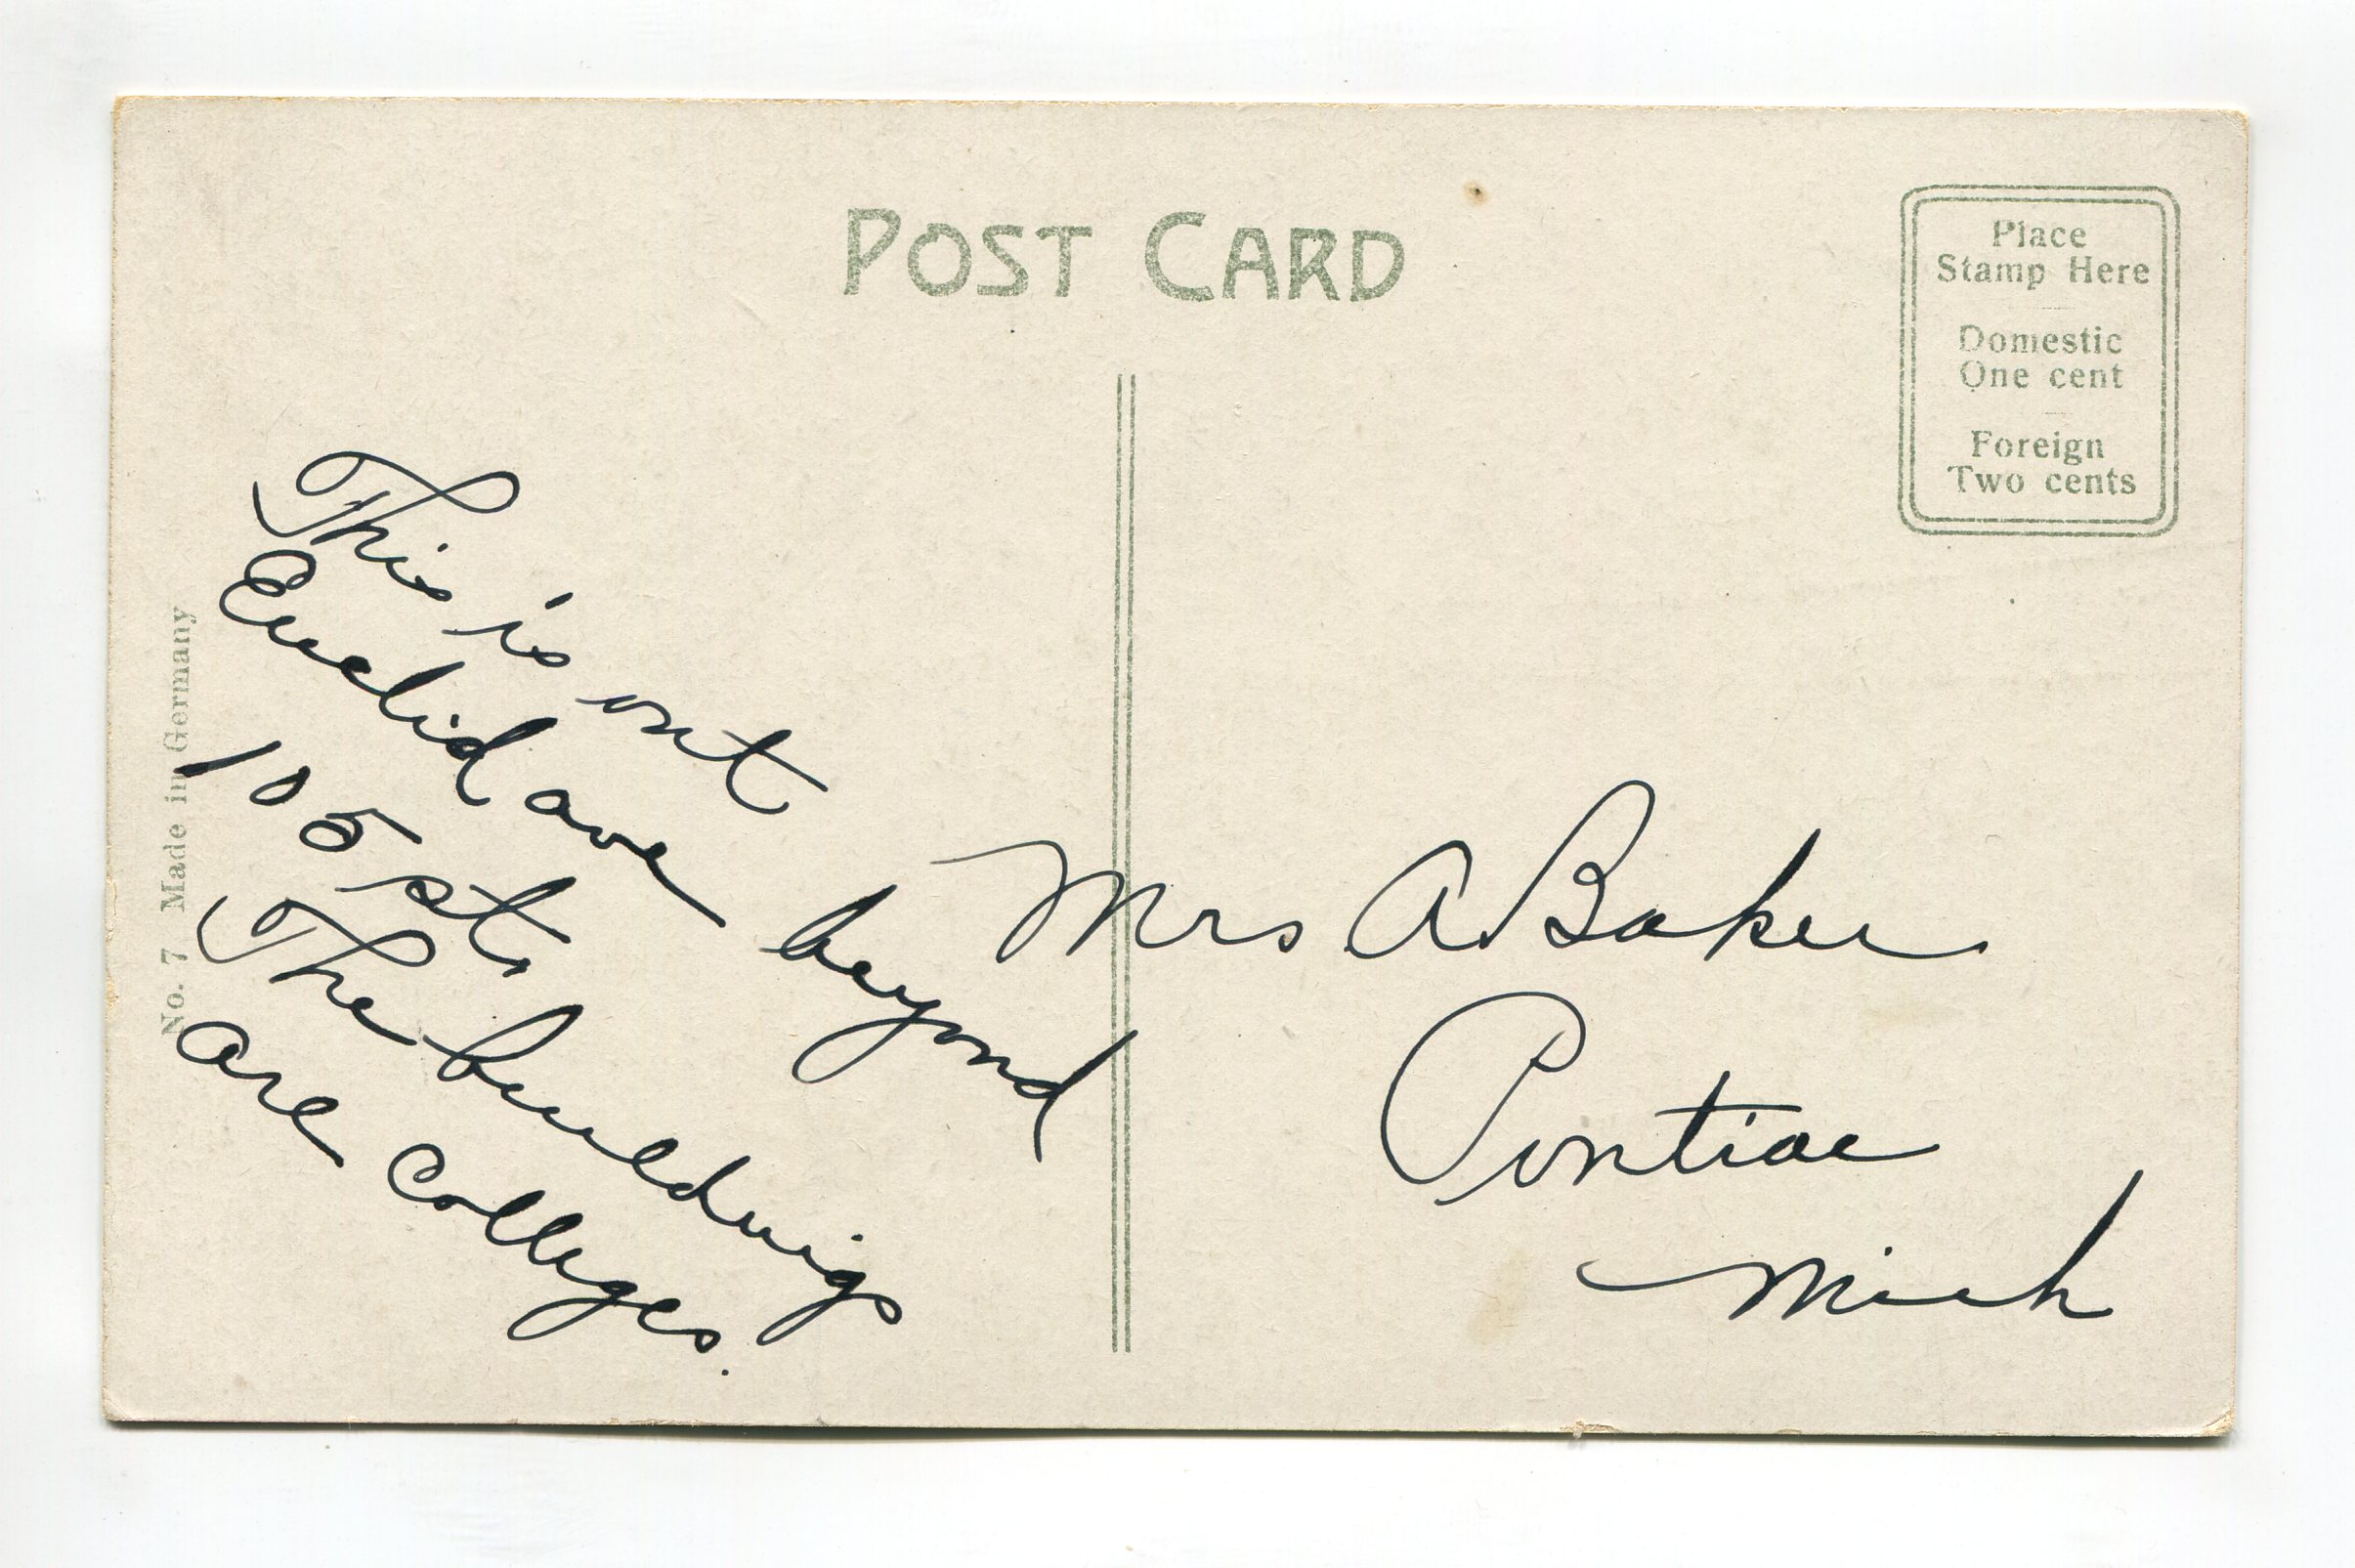 POST CARD
Place
Stamp Here
Domestic
One cent
Foreign
Two cents
No. 7 Made in Germany
This is out
Euclid ave beyond
105 st.
The buildings
are Colleges.
Mrs A. Baker
Pontiac
Mich